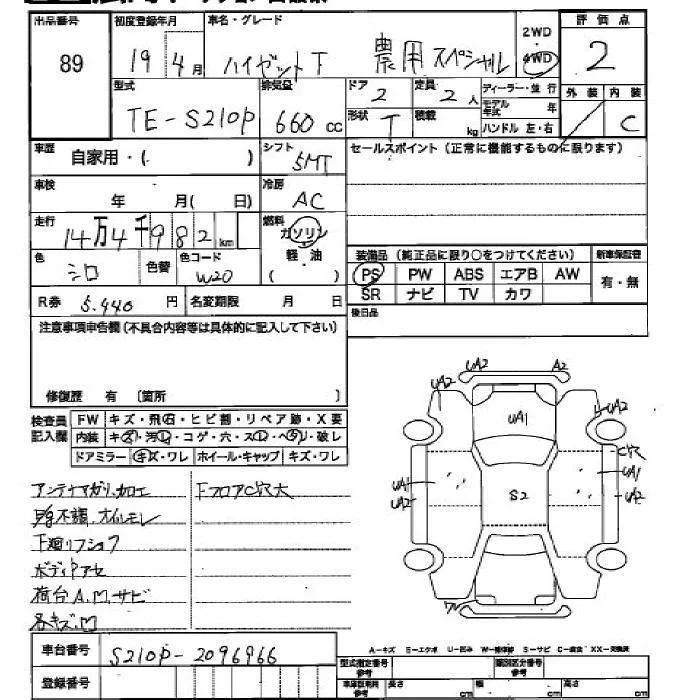 出品番号 初度登録年月 車名・グレード 2WD 4WD 評価点
89 19年4月 ハイゼットT 農用スペシャル 2
型式 排気量 ドア 定員 ディーラー・並行 外装 内装
TE-S210P 660cc 2 2人 モデル年式
形状 T 積載 kg ハンドル 左・右 C
車歴 自家用・( ) シフト 5MT セールスポイント (正常に機能するものに限ります)
車検 年 月( 日) 冷房 AC
走行 14万4千982km 燃料 ガソリン 軽油 ( )
色 シロ 色替 色コード W20
装備品 (純正品に限り○をつけてください) 新車保証書
PS PW ABS エアB AW 有・無
SR ナビ TV カワ
R券 5.940円 名変期限 月 日 後日品
注意事項申告欄 (不具合内容等は具体的に記入して下さい)
修復歴 有 〔箇所 〕
検査員記入欄 FW キズ・飛石・ヒビ割・リペア跡・X要
内装 キズ・汚レ・コゲ・穴・スレ・ヘタリ・破レ
ドアミラー キズ・ワレ ホイール・キャップ キズ・ワレ
アンテナマガリ.加工 FフロアC穴大
オイルモレ
下廻リフショク
ボディヤケ
荷台A.凹.サビ
各キズ.凹
UA2 A2
UA2 UA2
UA1
C穴
UA1 UA1
UA2 S2 UA2
車台番号 S210P-2096966
登録番号
A-キズ S-エクボ U-凹み W-補修跡 S-サビ C-腐食 XX-交換済
型式指定番号 参考 類別区分番号 参考
車庫証明用 参考 長さ cm 幅 cm 高さ cm